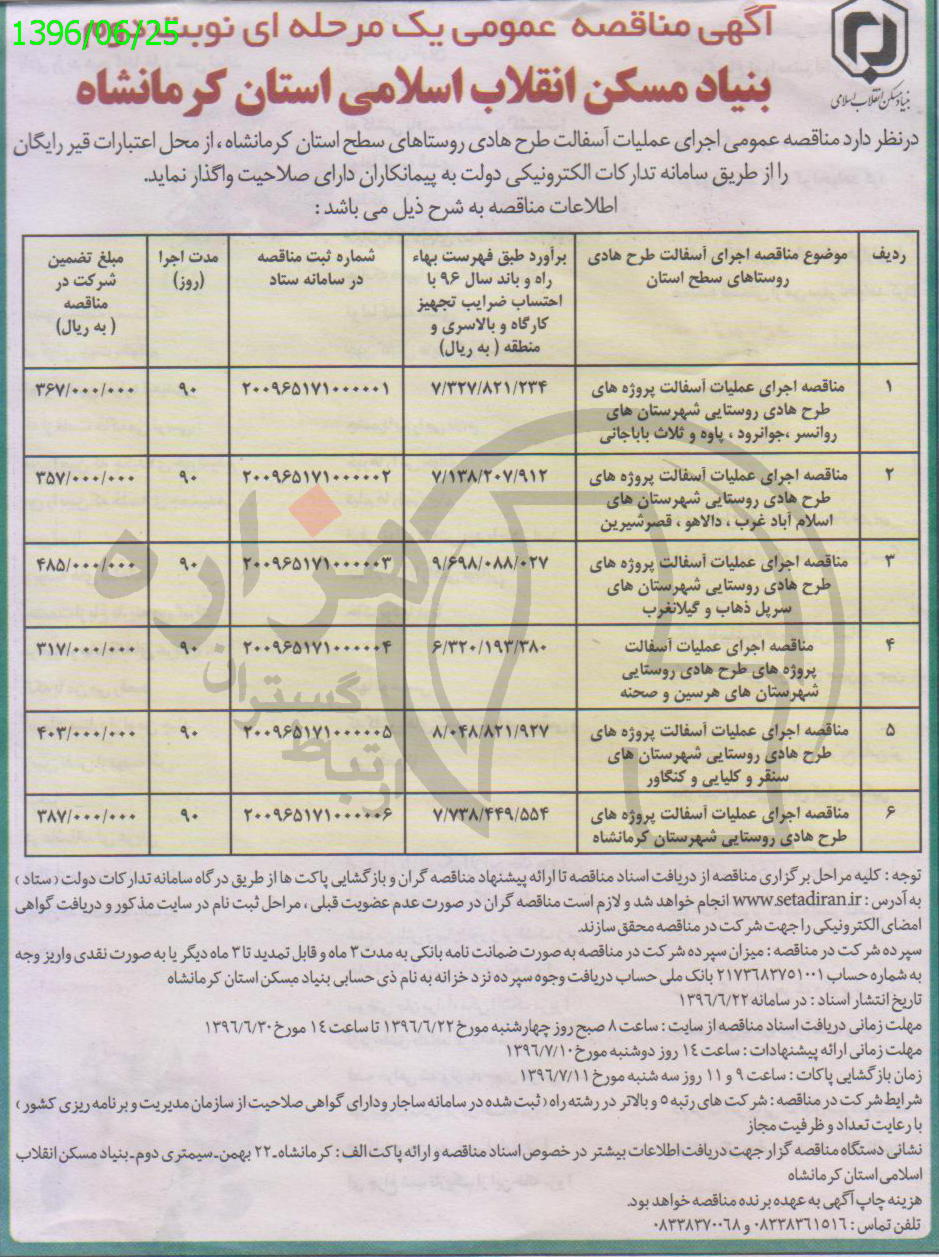 1396/06/25
آگهی مناقصه عمومی یک مرحله ای نوبت دوم
بنیاد مسکن انقلاب اسلامی استان کرمانشاه
بنیاد مسکن انقلاب اسلامی
درنظر دارد مناقصه عمومی اجرای عملیات آسفالت طرح هادی روستاهای سطح استان کرمانشاه ، از محل اعتبارات قیر رایگان
را از طریق سامانه تدارکات الکترونیکی دولت به پیمانکاران دارای صلاحیت واگذار نماید.
اطلاعات مناقصه به شرح ذیل می باشد :
ردیف
موضوع مناقصه اجرای آسفالت طرح هادی
روستاهای سطح استان
برآورد طبق فهرست بهاء
راه و باند سال ۹۶ با
احتساب ضرایب تجهیز
کارگاه و بالاسری و
منطقه ( به ریال)
شماره ثبت مناقصه
در سامانه ستاد
مدت اجرا
(روز)
مبلغ تضمین
شرکت در
مناقصه
( به ریال)
۱
مناقصه اجرای عملیات آسفالت پروژه های
طرح هادی روستایی شهرستان های
روانسر ،جوانرود ، پاوه و ثلاث باباجانی
۷/۳۲۷/۸۲۱/۲۳۴
۲۰۰۹۶۵۱۷۱۰۰۰۰۰۱
۹۰
۳۶۷/۰۰۰/۰۰۰
۲
مناقصه اجرای عملیات آسفالت پروژه های
طرح هادی روستایی شهرستان های
اسلام آباد غرب ، دالاهو ، قصرشیرین
۷/۱۳۸/۲۰۷/۹۱۲
۲۰۰۹۶۵۱۷۱۰۰۰۰۰۲
۹۰
۳۵۷/۰۰۰/۰۰۰
۳
مناقصه اجرای عملیات آسفالت پروژه های
طرح هادی روستایی شهرستان های
سرپل ذهاب و گیلانغرب
۹/۶۹۸/۰۸۸/۰۲۷
۲۰۰۹۶۵۱۷۱۰۰۰۰۰۳
۹۰
۴۸۵/۰۰۰/۰۰۰
۴
مناقصه اجرای عملیات آسفالت
پروژه های طرح هادی روستایی
شهرستان های هرسین و صحنه
۶/۳۲۰/۱۹۳/۳۸۰
۲۰۰۹۶۵۱۷۱۰۰۰۰۰۴
۹۰
۳۱۷/۰۰۰/۰۰۰
۵
مناقصه اجرای عملیات آسفالت پروژه های
طرح هادی روستایی شهرستان های
سنقر و کلیایی و کنگاور
۸/۰۴۸/۸۲۱/۹۲۷
۲۰۰۹۶۵۱۷۱۰۰۰۰۰۵
۹۰
۴۰۳/۰۰۰/۰۰۰
۶
مناقصه اجرای عملیات آسفالت پروژه های
طرح هادی روستایی شهرستان کرمانشاه
۷/۷۳۸/۴۴۹/۵۵۴
۲۰۰۹۶۵۱۷۱۰۰۰۰۰۶
۹۰
۳۸۷/۰۰۰/۰۰۰
هزاره
گستران
ارتباط
توجه : کلیه مراحل برگزاری مناقصه از دریافت اسناد مناقصه تا ارائه پیشنهاد مناقصه گران و بازگشایی پاکت ها از طریق درگاه سامانه تدارکات دولت ( ستاد )
به آدرس : www.setadiran.ir انجام خواهد شد و لازم است مناقصه گران در صورت عدم عضویت قبلی ، مراحل ثبت نام در سایت مذکور و دریافت گواهی
امضای الکترونیکی را جهت شرکت در مناقصه محقق سازند.
سپرده شرکت در مناقصه : میزان سپرده شرکت در مناقصه به صورت ضمانت نامه بانکی به مدت ۳ ماه و قابل تمدید تا ۳ ماه دیگر یا به صورت نقدی واریز وجه
به شماره حساب ۲۱۷۳۶۸۳۷۵۱۰۰۱ بانک ملی حساب دریافت وجوه سپرده نزد خزانه به نام ذی حسابی بنیاد مسکن استان کرمانشاه
تاریخ انتشار اسناد : در سامانه ۱۳۹۶/۶/۲۲
مهلت زمانی دریافت اسناد مناقصه از سایت : ساعت ۸ صبح روز چهارشنبه مورخ ۱۳۹۶/۶/۲۲ تا ساعت ۱۴ مورخ ۱۳۹۶/۶/۳۰
مهلت زمانی ارائه پیشنهادات : ساعت ۱۴ روز دوشنبه مورخ ۱۳۹۶/۷/۱۰
زمان بازگشایی پاکات : ساعت ۹ و ۱۱ روز سه شنبه مورخ ۱۳۹۶/۷/۱۱
شرایط شرکت در مناقصه : شرکت های رتبه ۵ و بالاتر در رشته راه ( ثبت شده در سامانه ساجار و دارای گواهی صلاحیت از سازمان مدیریت و برنامه ریزی کشور )
با رعایت تعداد و ظرفیت مجاز
نشانی دستگاه مناقصه گزار جهت دریافت اطلاعات بیشتر در خصوص اسناد مناقصه و ارائه پاکت الف : کرمانشاه-۲۲ بهمن-سیمتری دوم-بنیاد مسکن انقلاب
اسلامی استان کرمانشاه
هزینه چاپ آگهی به عهده برنده مناقصه خواهد بود.
تلفن تماس : ۰۸۳۳۸۳۶۱۵۱۶ و ۰۸۳۳۸۳۷۰۰۶۸